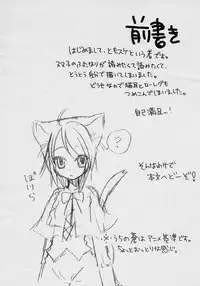 前書き
はじめまして、ともスケという者です。
スマ子のふたなりが読みたくて読みたくて、
とうとう自分で描いてしまいました。
どうせなので猫耳とロー
つめこんでしまいました。
自己満足...!
?
ぽけら
そんなわけで
本文へどーぞ!
※うちの蒼はアニメ基準です。
ちょっとおっとりな感じ。